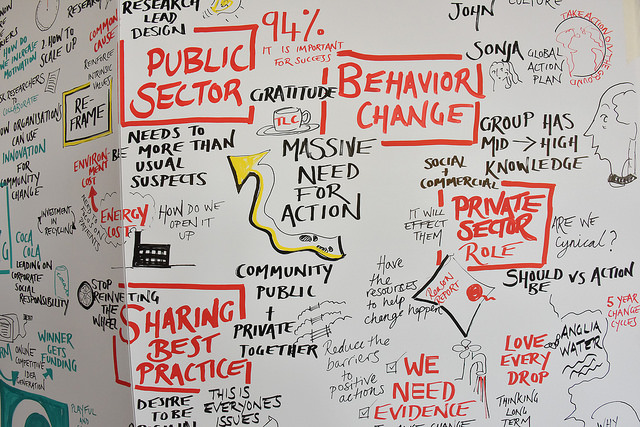 RESEARCH
LEAD
DESIGN
94%
IT IS IMPORTANT
FOR SUCCESS
JOHN
CULTURE
TAKE ACTION ON THE GROUND
SONJA
GLOBAL
ACTION
PLAN
HOW DO
WE INCREASE
MOTIVATION
2. HOW TO
SCALE UP
COMMON
CAUSE
REINFORCE
INTRINSIC
VALUES
RESEARCHERS
COLLABORATE
RE-
FRAME
PUBLIC
SECTOR
GRATITUDE
TLC
BEHAVIOR
CHANGE
GROUP HAS
MID → HIGH
KNOWLEDGE
OW ORGANISATIONS
CAN USE
INNOVATION
FOR
COMMUNITY
CHANGE
ENVIRON-
MENT
COST
NEEDS TO
BE MORE THAN
USUAL
SUSPECTS
MASSIVE
NEED
FOR
ACTION
SOCIAL
+
COMMERCIAL
IT WILL
EFFECT
THEM
PRIVATE
SECTOR
ROLE
ARE WE
Cynical?
INVESTMENT
IN
RECYCLING
ENERGY
COST
HOW DO WE
OPEN IT
UP
COCA
COLA
LEADING ON
CORPORATE
SOCIAL
RESPONSIBILITY
COMMUNITY
PUBLIC
+
PRIVATE
TOGETHER
Have
the
resources
to help
change happen
REPORT
SHOULD VS ACTION
BE
STOP
REINVENTING
THE
WHEEL
SHARING
BEST
PRACTICE
5 YEAR
CHANGE
CYCLES
WINNER
GETS
FUNDING
ONLINE
COMPETITIVE
IDEA
GENERATION
Reduce the
barriers
to
positive
actions
WE
NEED
EVIDENCE
LOVE
EVERY
DROP
ANGLIA
WATER
THINKING
LONG
TERM
PLAYFUL
AND
DESIRE
TO BE
THIS IS
EVERYONES
ISSUES
WHY